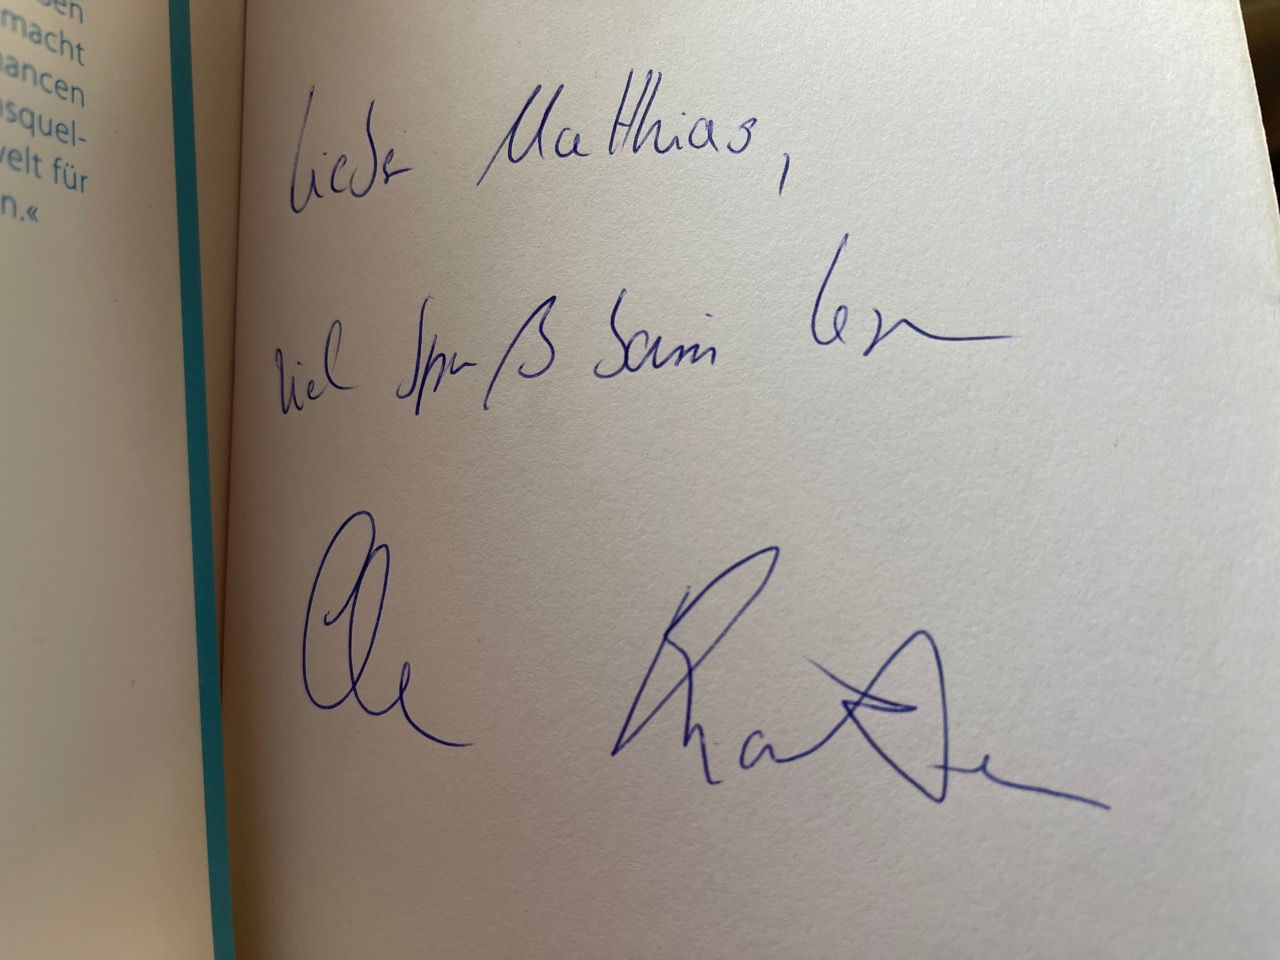 macht
ancen
squel-
elt für
n.«
Lieber Matthias,
viel Spaß beim Lesen
Ole